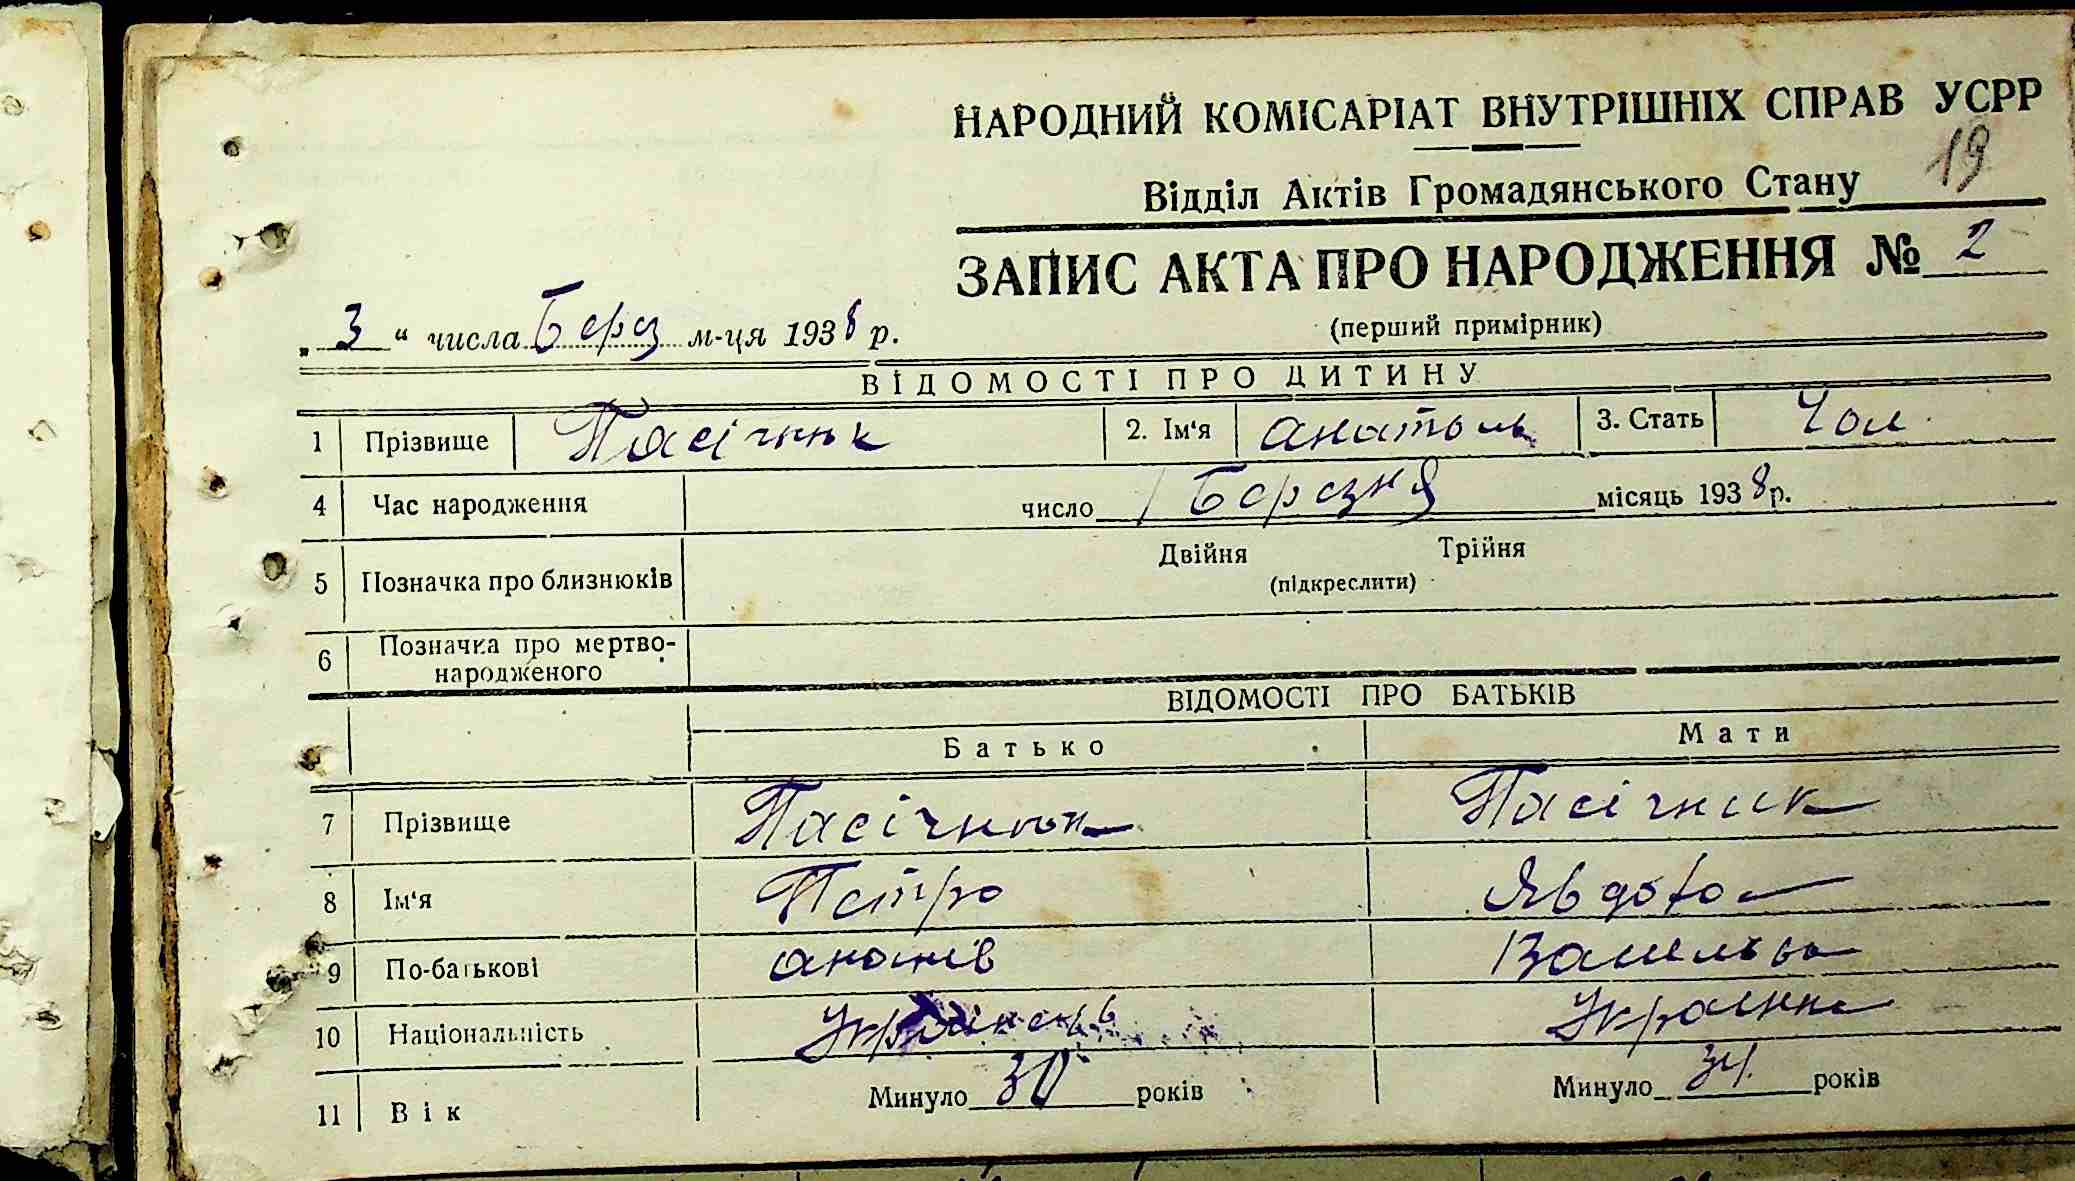 НАРОДНИЙ КОМІСАРІАТ ВНУТРІШНІХ СПРАВ УСРР
19
Відділ Актів Громадянського Стану
ЗАПИС АКТА ПРО НАРОДЖЕННЯ № 2
(перший примірник)
„ 3 “ числа Берез м-ця 1938 р.
ВІДОМОСТІ ПРО ДИТИНУ
1 Прізвище Пасічник 2. Ім'я Анатоль 3. Стать Чол
4 Час народження число 1 Березня місяць 1938 р.
5 Позначка про близнюків Двійня Трійня
(підкреслити)
6 Позначка про мертво-
народженого
ВІДОМОСТІ ПРО БАТЬКІВ
Батько Мати
7 Прізвище Пасічник Пасічник
8 Ім'я Петро Явдоха
9 По-батькові Васильов
10 Національність Українець Українка
11 Вік Минуло 30 років Минуло 34 років